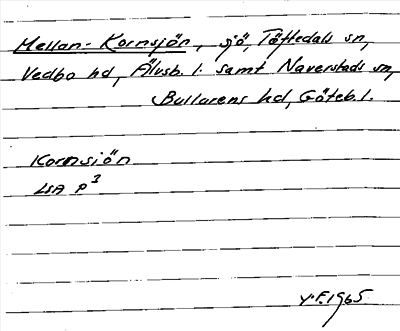 Mellan-Kornsjön, sjö, Töftedals sn,
Vedbo hd, Älvsb. l. samt Naverstads sn,
Bullarens hd, Göteb. l.
Kornsjön
LSA P3
Y.F. 1965